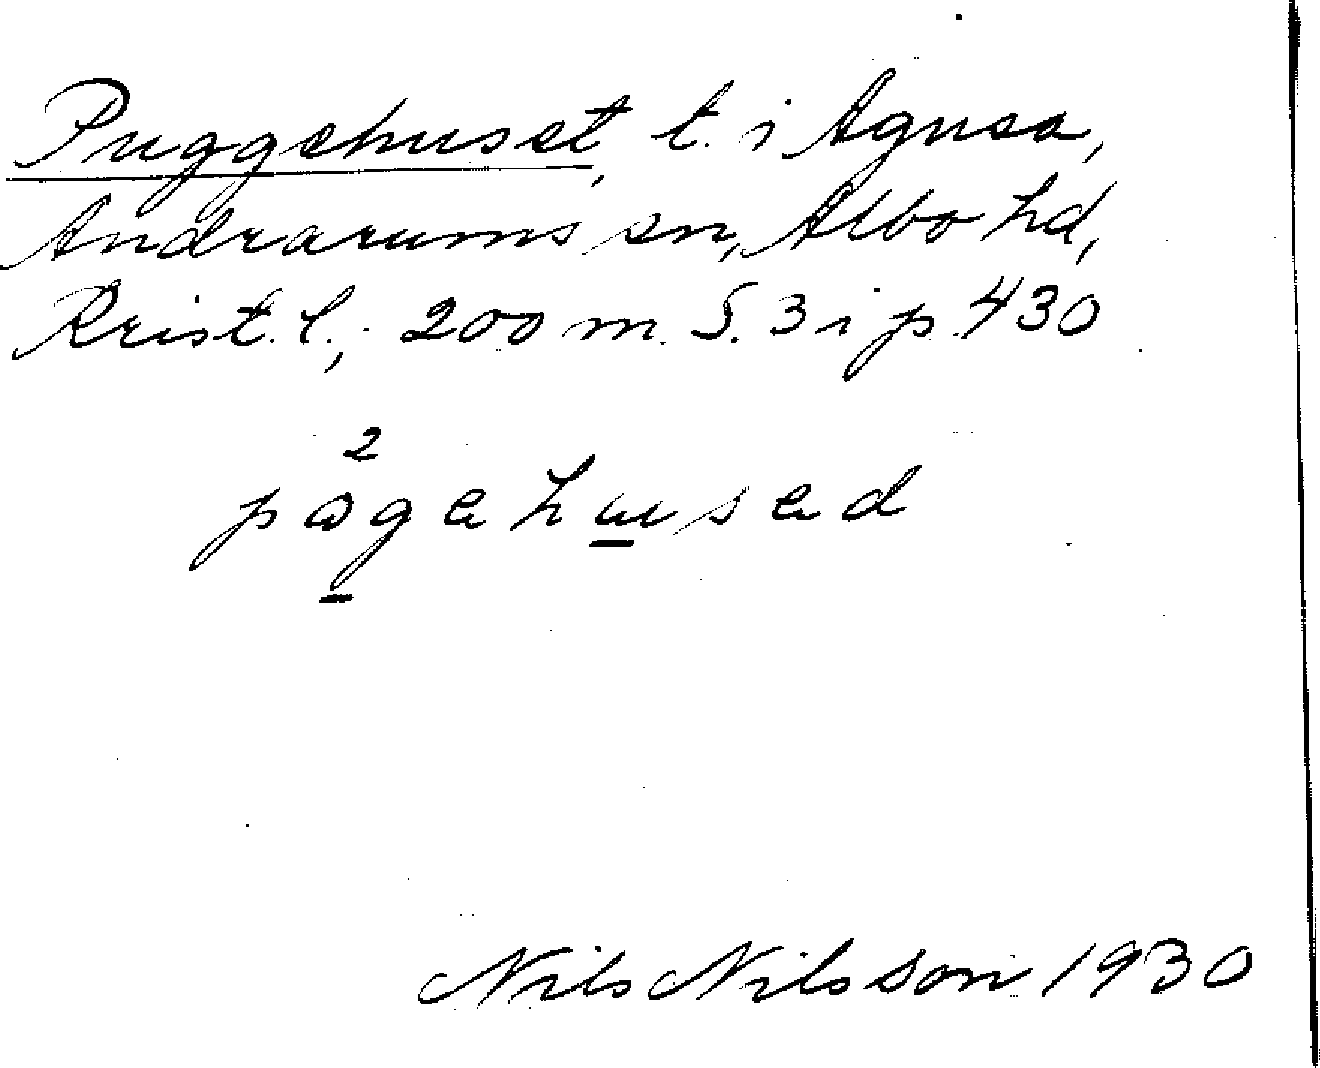 Puggehuset, t. i Agusa,
Andrarums sn, Albo hd,
Krist. l.; 200 m. S. 3 i p. 430
2
pågehused
Nils Nilsson 1930